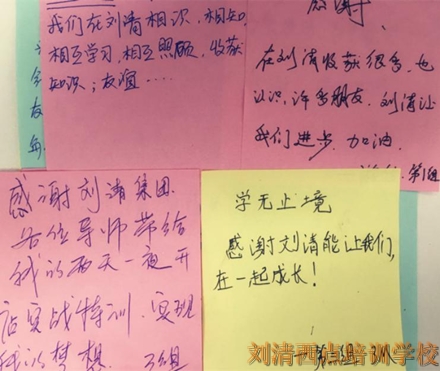 我们在刘清相识、相知,
相互学习,相互照顾,收获
知识;友谊....
感谢
在刘清收获很多,也
认识许多朋友.刘清让
我们进步.加油.
第1组
感谢刘清集团.
各位导师带给
我的两天一夜开
店实战特训.实现
我的梦想.
学无止境
感谢刘清能让我们,
在一起成长!
刘清西点培训学校